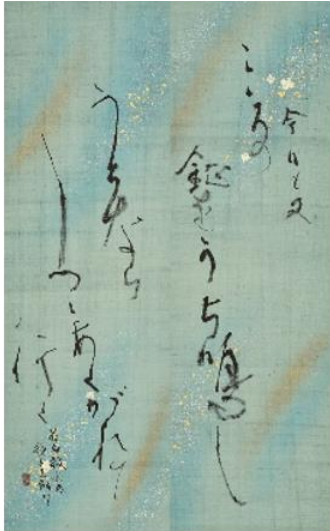 今日も又
こゝろの
鉦をうち鳴し
うちならし
つゝあくがれて
行く